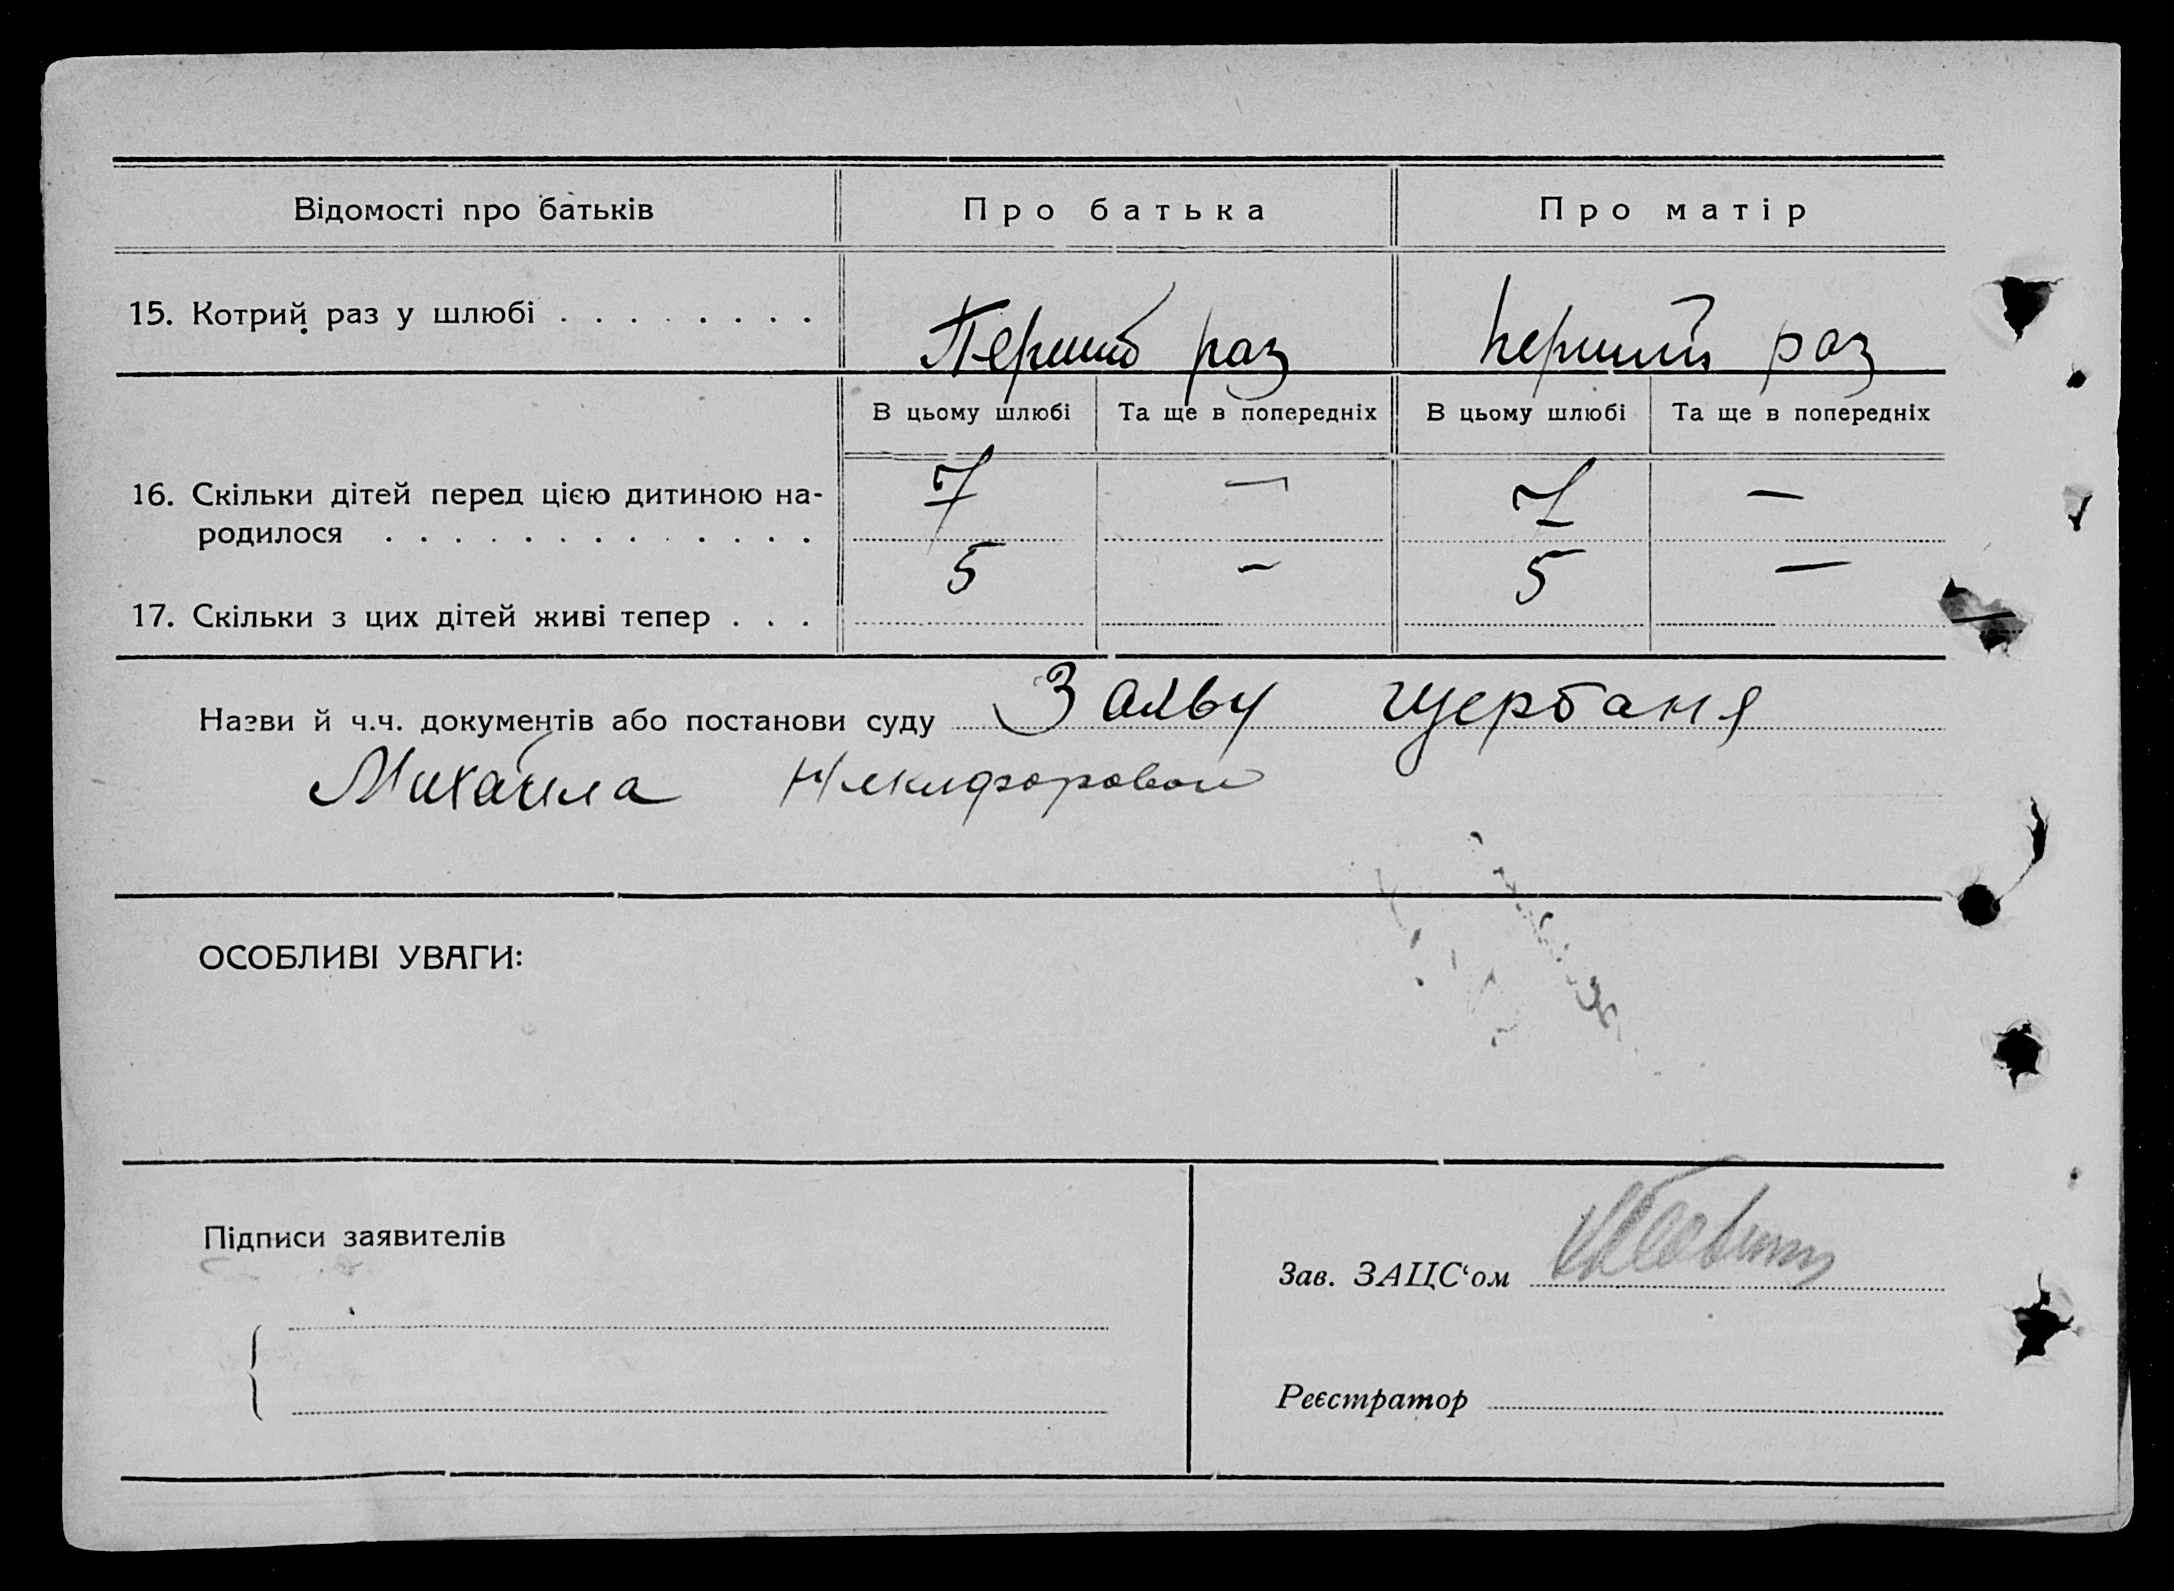 Відомості про батьків Про батька Про матір
15. Котрий раз у шлюбі . . . . . . . . Перший раз перший раз
В цьому шлюбі Та ще в попередніх В цьому шлюбі Та ще в попередніх
16. Скільки дітей перед цією дитиною на- 7 — 7 —
родилося . . . . . . . . . . . . .
5 — 5 —
17. Скільки з цих дітей живі тепер . . .
Назви й ч.ч. документів або постанови суду Заяву Щербаня
Михайла Никифорович
ОСОБЛИВІ УВАГИ:
Підписи заявителів
Зав. ЗАЦС‘ом
Реєстратор